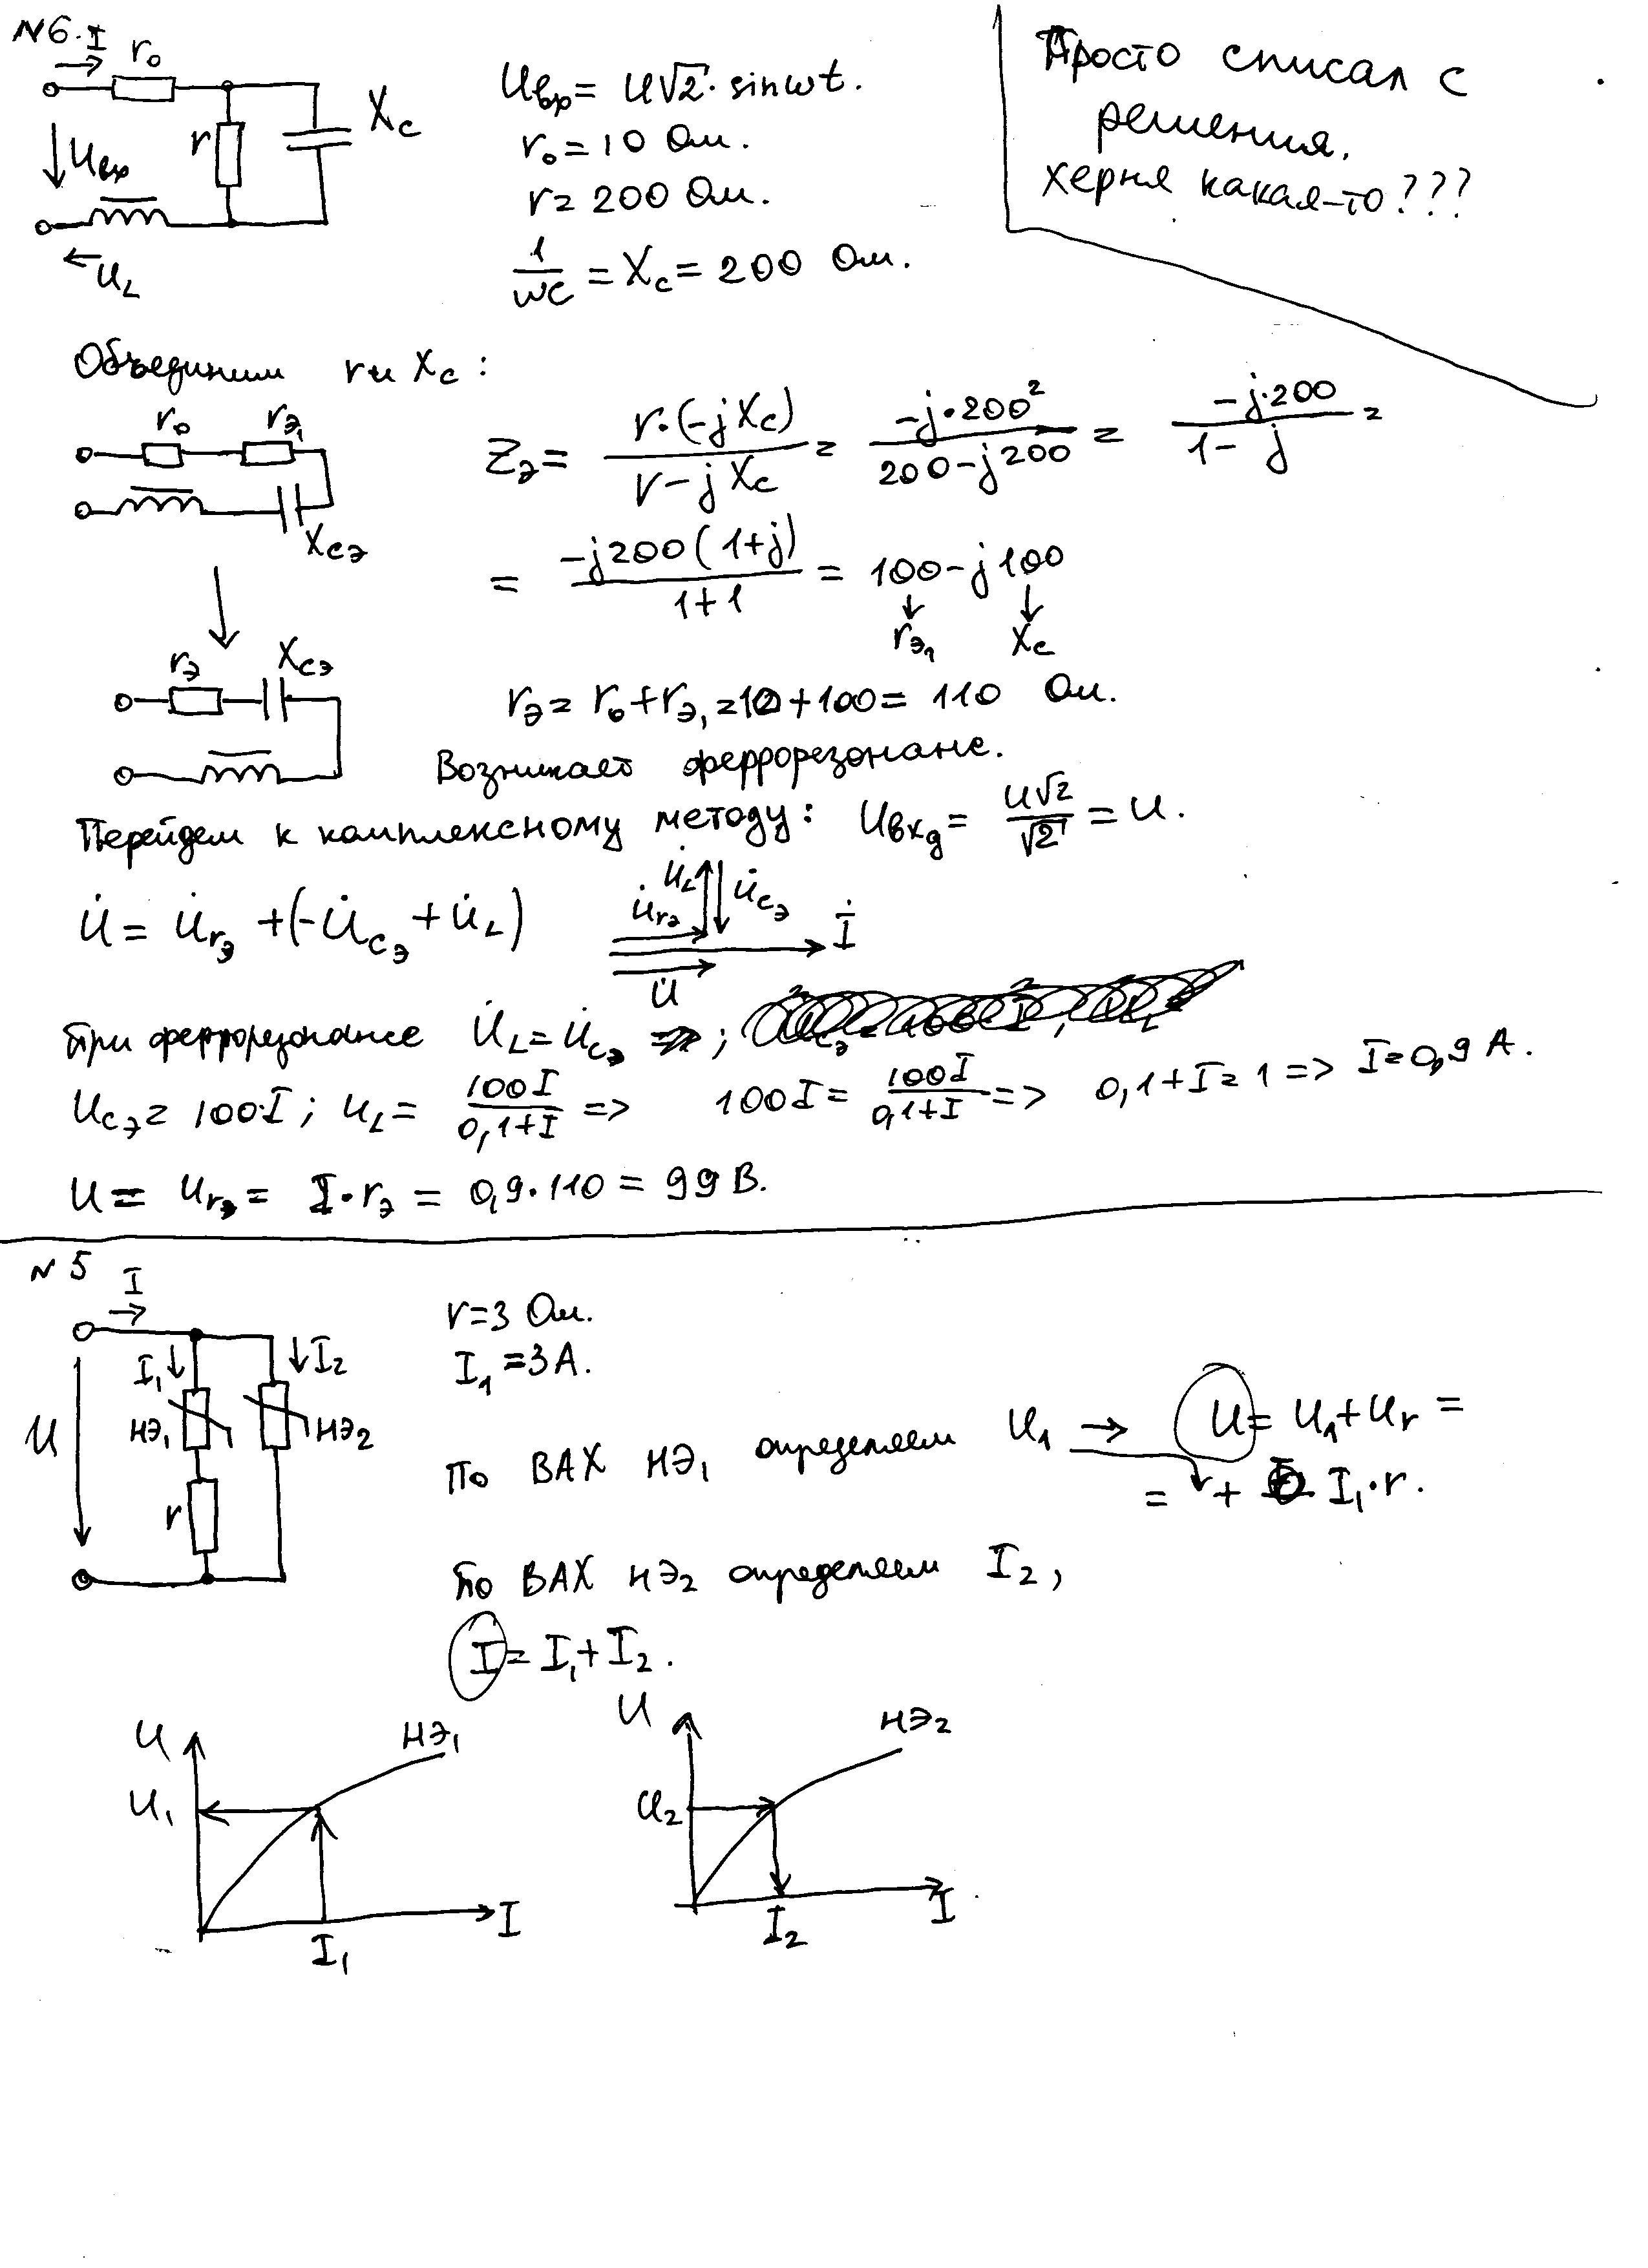 N6.
I
r₀
r
Xc
Uвх
UL
Uвх = U√2 · sinωt.
r₀ = 10 Ом.
r = 200 Ом.
1/ωC = Xc = 200 Ом.
Просто списал с
решения.
херня какая-то???
Объединим r и Xc :
r₀ rэ₁
Xcэ
Zэ = r·(-jXc)/(r-jXc) = -j·200²/(200-j200) = -j·200/(1-j) =
= -j200(1+j)/(1+1) = 100 - j100
rэ₁ Xc
rэ Xcэ
rэ = r₀ + rэ₁ = 10 + 100 = 110 Ом.
Возникает феррорезонанс.
Перейдем к комплексному методу: Uвхд = U√2/√2 = U.
U̇ = U̇rэ + (-U̇cэ + U̇L)
U̇L U̇cэ
U̇rэ İ
U̇
При феррорезонансе U̇L = U̇cэ ;
Ucэ = 100·I ; UL = 100I/(0,1+I) => 100I = 100I/(0,1+I) => 0,1+I = 1 => I = 0,9 А.
U = Urэ = I·rэ = 0,9·110 = 99 В.
N 5
I
I₁ I₂
U НЭ₁ НЭ₂
r
r = 3 Ом.
I₁ = 3 А.
По ВАХ НЭ₁ определяем U₁ → U = U₁ + Ur =
= + I₁·r.
По ВАХ НЭ₂ определяем I₂,
I = I₁ + I₂.
U НЭ₁
U₁
I
I₁
U НЭ₂
U₂
I
I₂